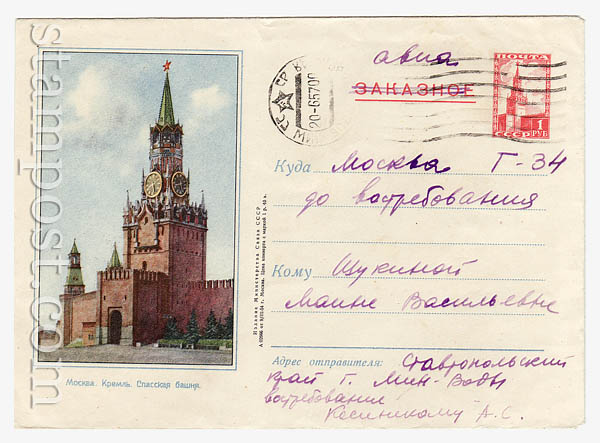 авиа
ПОЧТА
ЗАКАЗНОЕ
1
РУБ
СССР
20-65700
Куда Москва Г-34
до востребования
Кому Щукиной
Васильевне
Адрес отправителя: Ставропольский
край г. Мин-Воды
востребование
А.С.
Москва. Кремль. Спасская башня.
Издание Министерства Связи СССР
stampost.com